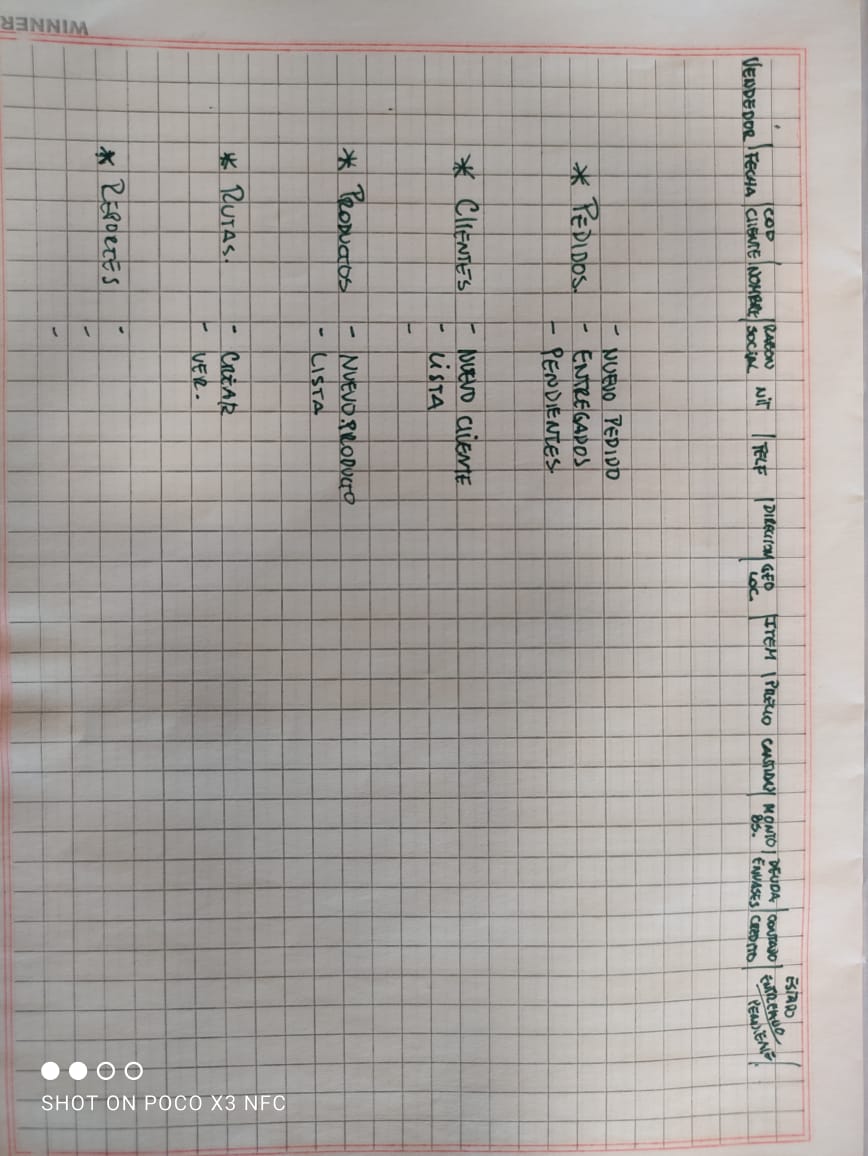 VENDEDOR FECHA COD CLIENTE NOMBRE RAZON SOCIAL NIT TELF DIRECCION GEO LOC. ITEM PRECIO CANTIDAD MONTO BS. DEUDA ENVASES CONTADO CREDITO ESTADO ENTREGADO PENDIENTE
- NUEVO PEDIDO
* PEDIDOS. - ENTREGADOS
- PENDIENTES
* CLIENTES - NUEVO CLIENTE
- LISTA
-
* PRODUCTOS - NUEVO PRODUCTO
- LISTA
* RUTAS. - CREAR
- VER.
* REPORTES -
-
-
WINNER
SHOT ON POCO X3 NFC